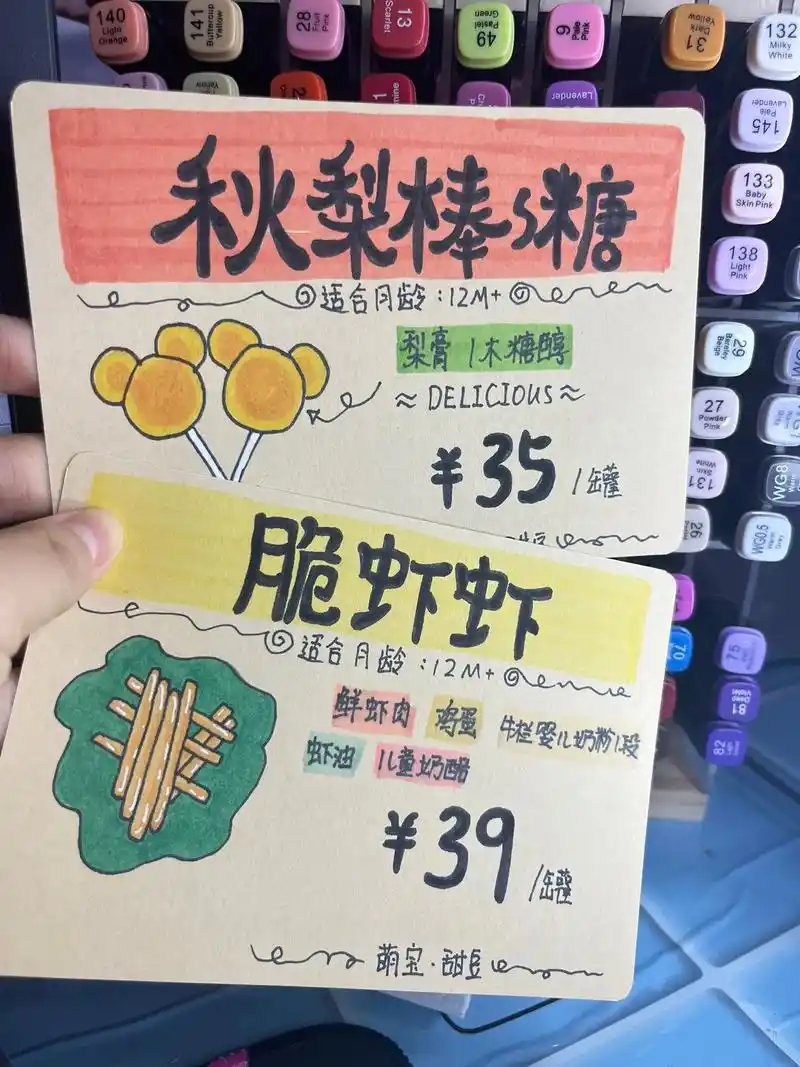 140
Light
Orange
141
Buttercup
Yellow
28
Fruit
Pink
13
Scarlet
49
Pastel
Green
9
Pale
Pink
31
Dark
Yellow
132
Milky
White
Lavender
145
Pale
Lavender
133
Baby
Skin Pink
138
Light
Pink
29
Barely
Beige
27
Powder
Pink
131
Skin
White
26
WG8
WG0.5
Warm
Grey
70
75
81
Deep
Violet
82
秋梨棒s糖
适合月龄:12M+
梨膏 / 木糖醇
≈ DELICIOUS ≈
¥35 /罐
脆虾虾
适合月龄:12M+
鲜虾肉 鸡蛋 牛栏婴儿奶粉1段
虾油 儿童奶酪
¥39 /罐
萌宝·甜豆